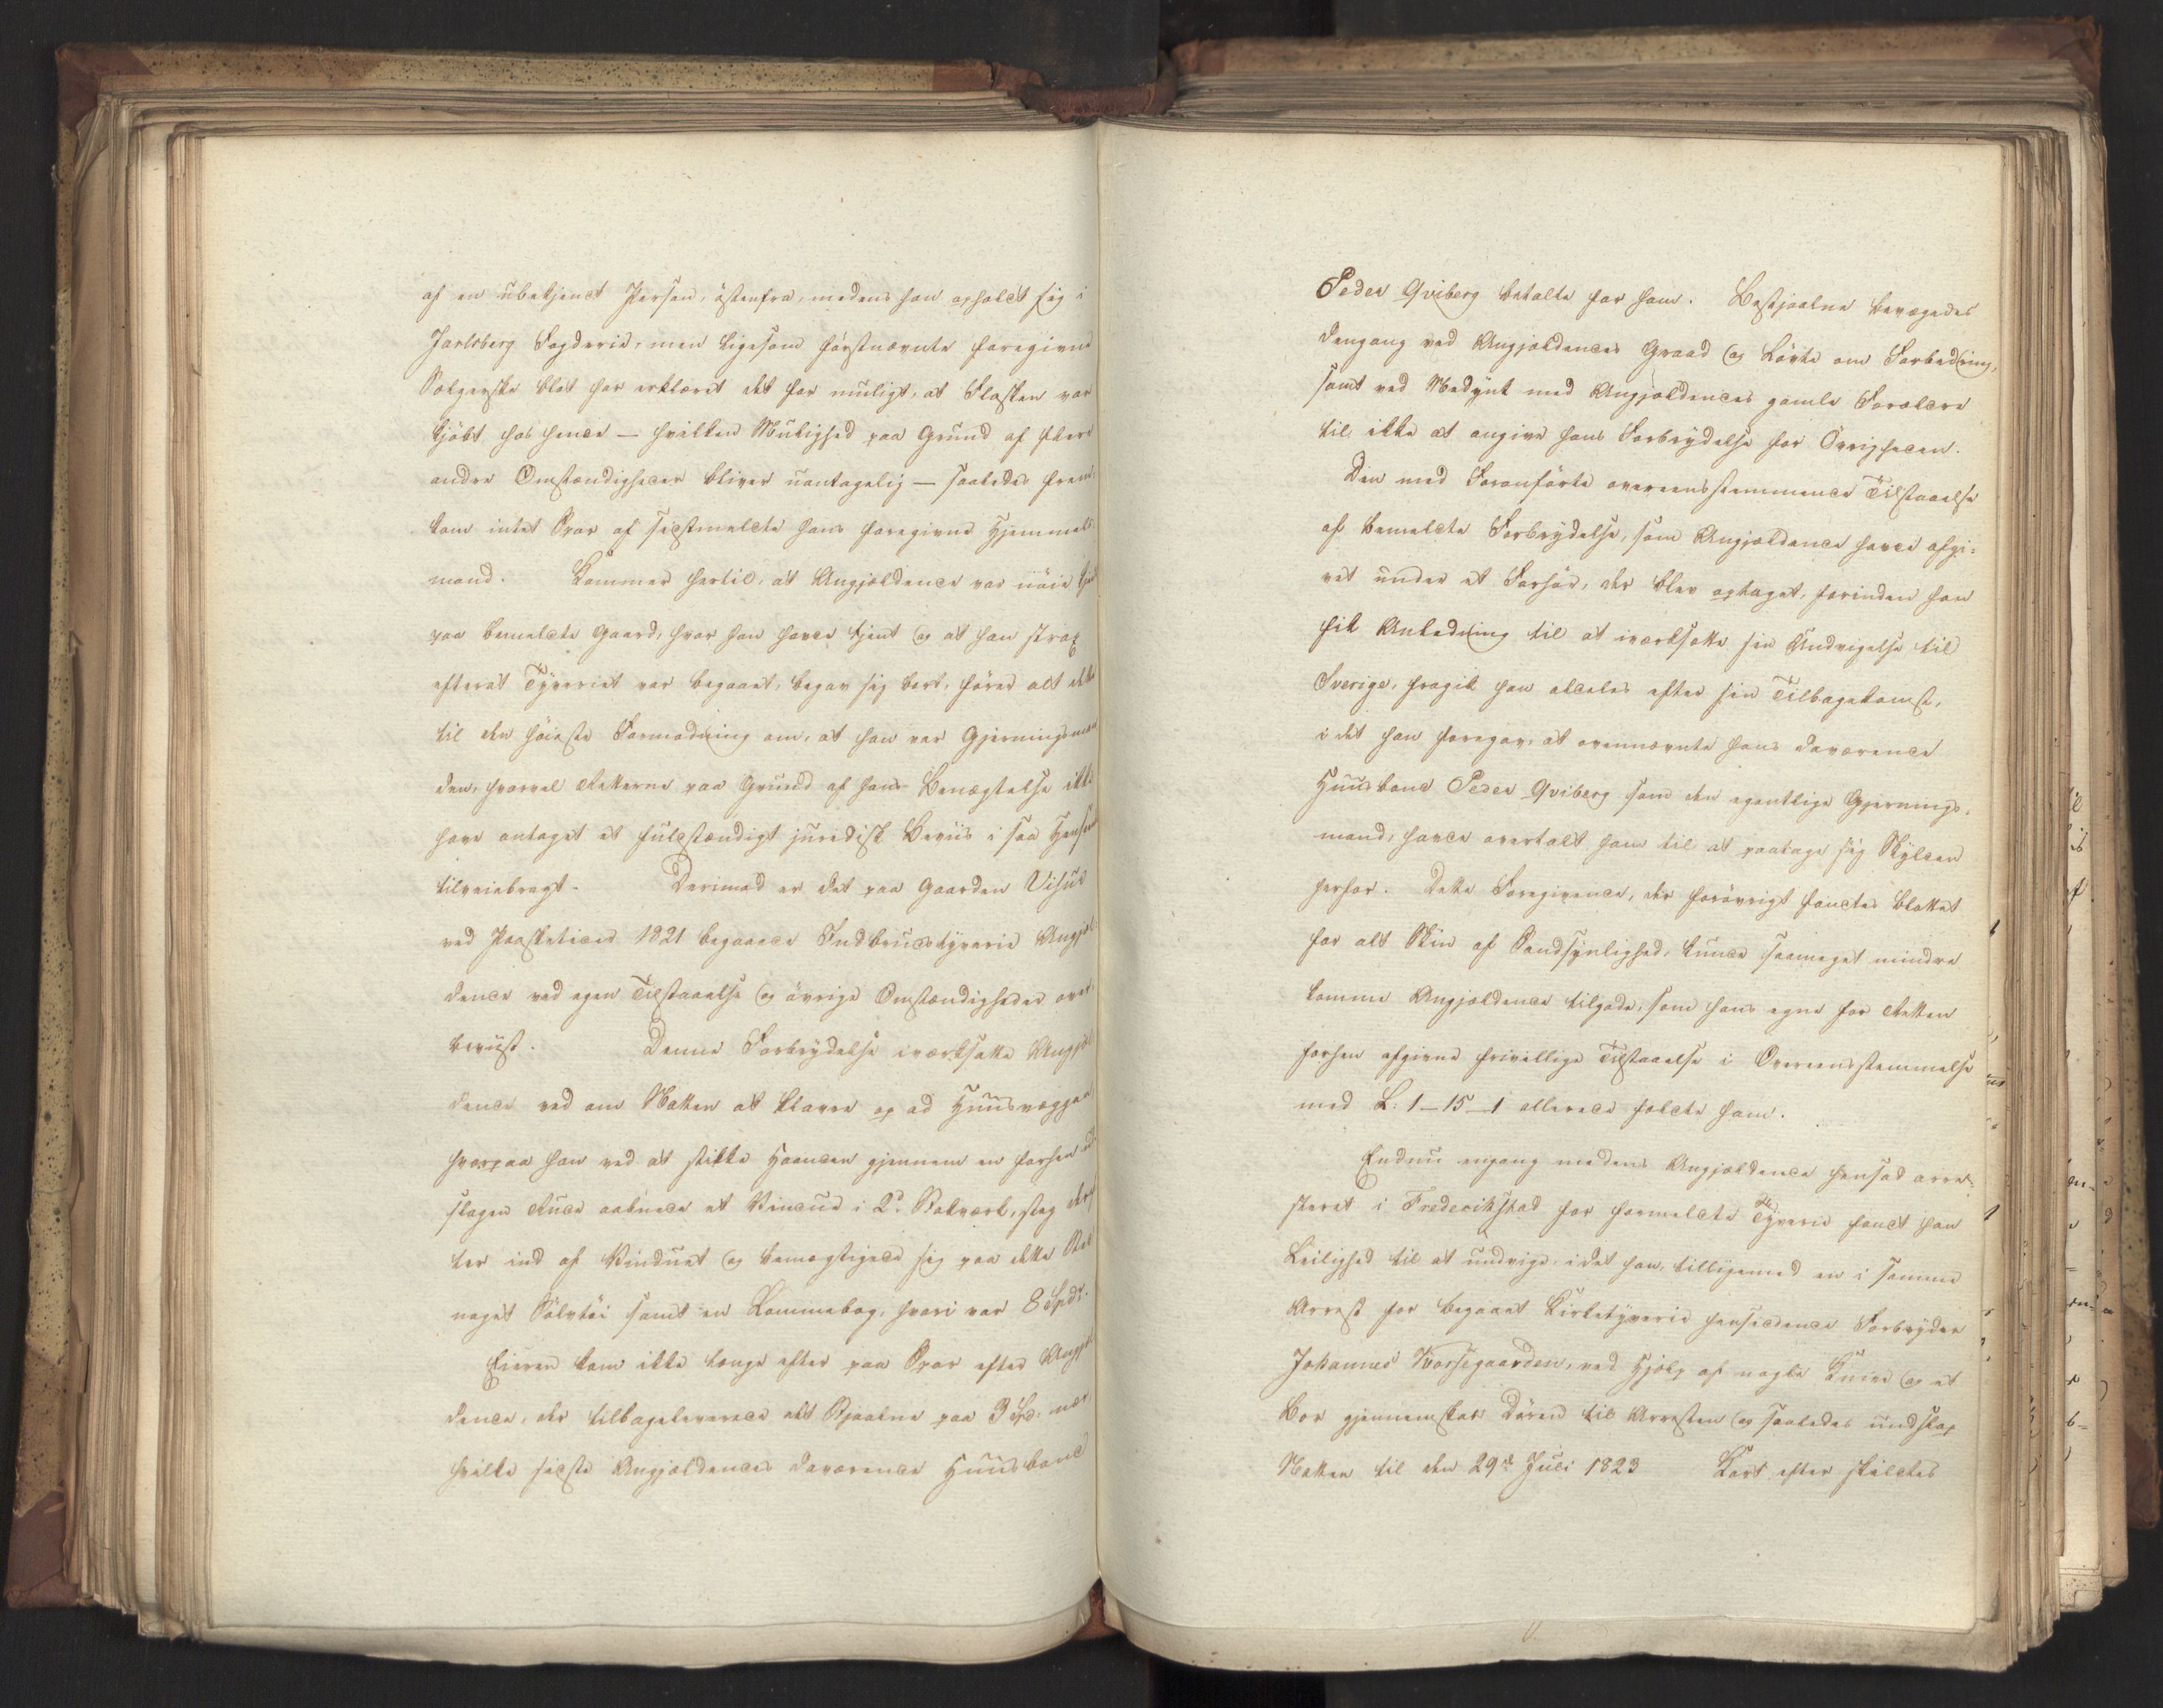 af en ubekjendt Person, östenfra, medens han opholdt sig i
Jarlsberg Fogderie, men ligesom förstnævnte foregivne
Sælgerske blot har erklæret det for muligt, at Flasken var
kjöbt hos hende — hvilken Mulighed paa Grund af flere
andre Omstændigheder bliver uantagelig — saaledes frem-
kom intet Spor af sidstmeldte hans foregivne Hjemmels-
mand. Kommer hertil, at Angjældende var nöie kjendt
paa bemeldte Gaard, hvor han havde tjent og at han strax
efterat Tyveriet var begaaet, begav sig bort, förer alt dette
til den höieste Formodning om, at han var Gjerningsman-
den, hvorvel Retterne paa Grund af hans Benægtelse ikke
have antaget et fuldstændigt juridisk Beviis i saa Henseende
tilveiebragt. Derimod er det paa Gaarden Visur
ved Paasketider 1821 begaaede Indbrudstyverie Angjæl-
dende ved egen Tilstaaelse og övrige Omstændigheder over-
beviist. Denne Forbrydelse iværksatte Angjæl-
dende ved om Natten at klavre op ad Huusvæggen
hvorpaa han ved at stikke Haanden gjennem en forhen ud-
slagen Rude aabnede et Vindue i 2d. Stokværk, steg deref-
ter ind af Vinduet og bemægtigede sig paa dette Sted
noget Sölvtöi samt en Lommebog, hvori var 8 Spdr.
Eieren kom ikke længe efter paa Spor efter Angjæl-
dende, der tilbageleverede det Stjaalne paa 3 Spd. nær
hvilke sidste Angjældendes daværende Huusbond
Peder Qviberg betalte for ham. Bestjaalne bevægedes
dengang ved Angjældendes Graad og Löfte om Forbedring,
samt ved Medynk med Angjældendes gamle Forældre
til ikke at angive hans Forbrydelse for Övrigheden.
Den med Foranförte overeensstemmende Tilstaaelse
af bemeldte Forbrydelse, som Angjældende havde afgi-
vet under et Forhör, der blev optaget, forinden han
fik Anledning til at iværksætte sin Undvigelse til
Sverige, fragik han aldeles efter sin Tilbagekomst,
i det han foregav, at ovennævnte hans daværende
Huusbond Peder Qviberg som den egentlige Gjernings-
mand, havde overtalt ham til at paatage sig Skylden
herfor. Dette Foregivende, der forövrigt fandtes blottet
for alt Skin af Sandsynlighed, kunde saameget mindre
komme Angjældende tilgode, som hans egne for Retten
forhen afgivne frivillige Tilstaaelse i Overeensstemmelse
med L: 1-15-1 allerede fældte ham.
Endnu engang medens Angjældende hensad arre-
steret i Frederikstad for formeldte Tyverie fandt han
Leilighed til at undvige, idet han tilligemed en i samme
Arrest for begaaet Kirketyverie hensiddende Forbryder
Johannes Korsegaarden, ved Hjælp af nogle Knive og et
Bor gjennemskar Dören til Arresten og saaledes undslap
Natten til den 29de Juli 1823 Kort efter skildtes